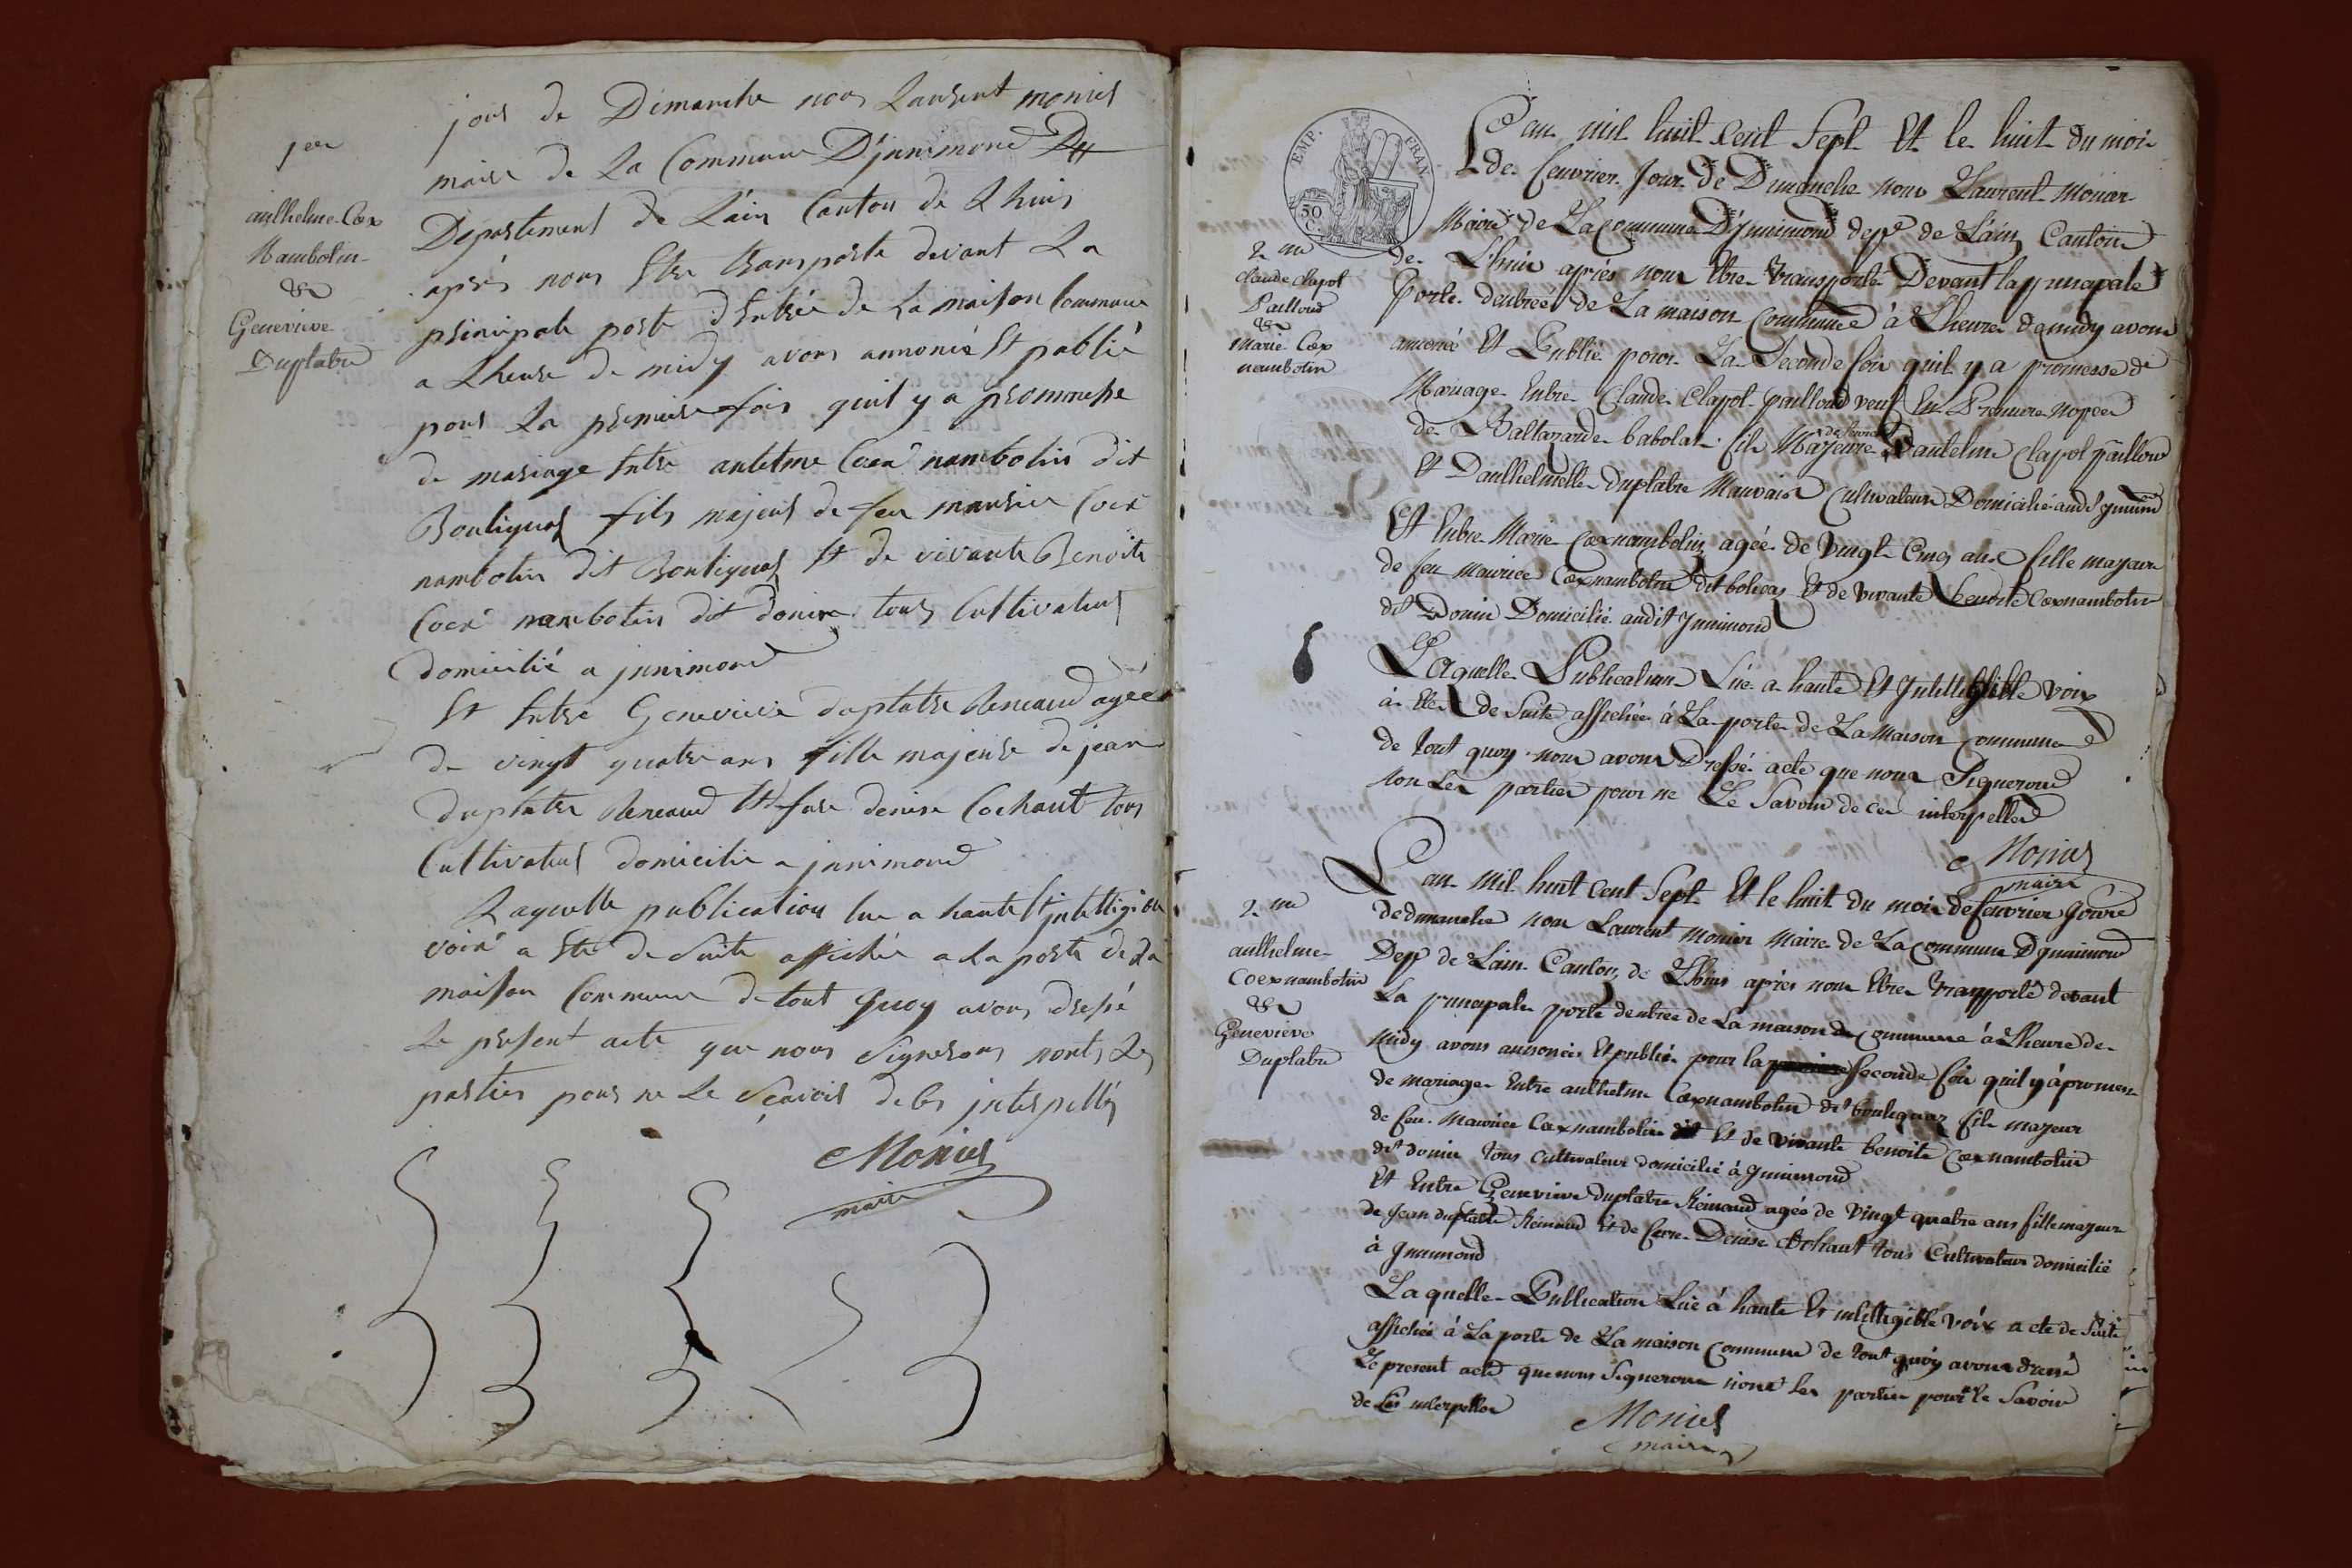 1ere
anthelme Coex
Nambotin
&
Genevieve
Duplatre
jour de Dimanche nous Laurent monier
maire de La Commune D'jnnimond
Département de L'ain Canton de Lhuis
après nous Etre transporte devant La
principale porte d'Entrée de La maison Commune
a Lheure de midy avons annoncé Et publié
pour La premiere fois quil y a prommesse
de mariage Entre antelme Coex nambotin dit
Bouliguas fils majeur de feu maurice Coex
nambotin dit Bouliguas Et de vivante Benoite
Coex nambotin dit donin tous Cultivateurs
domicilié a jnnimond
Et Entre Genevieve duplatre Reneaud agée
de vingt quatre ans fille majeure de jean
duplatre Reneaud Et fue denise Cochaut tous
Cultivateurs domicilié a jnnimond
Laquelle publication lue a haute Et jntelligible
voix a Ete de Suite affichée a La porte de La
maison Commune de tout quoy avons dressé
Le présent acte que nous Signerons nonts Les
parties pour ne Le Sçavoir de Ces jnterpellés
Monier
maire
EMP. FRAN.
50
C.
2.me
Claude Clapot
Pailloud
&
Marie Coex
nambotin
L'an mil huit Cent Sept Et le huit du mois
de fevrier Jour de Dimanche nous Laurent Monier
Maire de La Commune D'Jnnimond dept de L'ain Canton
de Lhuis après nous Etre transporté Devant la principale
Porte d'entrée de La maison Commune à L'heure de midy avons
anoncé Et Publié pour La Seconde fois quil y a promesse de
Mariage Entre Claude Clapot pailloud veuf En Premiere nopces
de Baltazarde babolat fils Majeur D'antelme Clapot pailloud
Et D'anthelmette Duplatre Mauvais Cultivateurs Domicilié audt Jnnimond
Et Entre Marie Coexnambotin agée de Vingt Cinq ans fille majeure
de feu Maurice Coexnambotin dit Et de vivante benoite Coexnambotin
dit Donin Domicilié audit Jnnimond
Laquelle Publication Lüe a haute Et Jntelligible voix
à Ete de Suite affichée à La porte de La Maison Commune
de tout quoy nous avons Dressé acte que nous Signerons
non Les parties pour ne Le Savoir de Ces interpellés
Monier
maire
2.me
anthelme
Coexnambotin
&
Genevieve
Duplatre
L'an Mil huit Cent Sept Et le huit du mois de fevrier Jour
de dimanche nous Laurent Monier Maire de La Commune D'Jnnimond
Dept de Lain Canton de Lhuis après nous Etre transporté devant
La principale porte dentrée de La maison Commune à L'heure de
Midy avons anoncés Et publié pour la premiere Seconde fois quil y à promesse
de mariage Entre anthelme Coexnambotin dit bouliguaz fils majeur
de feu Maurice Coexnambotin dit Et de Vivante benoite Coexnambotin
dit donin tous Cultivateurs domicilié à Jnnimond
Et Entre Genevieve duplatre Reneaud agée de Vingt quatre ans fille majeure
de Jean duplatre Reneaud Et de feue Denise Cochaut tous Cultivateurs domicilié
à Jnnimond
Laquelle Publication Lüe à haute Et intelligible voix a ete de Suite
affichée à La porte de La maison Commune de tout quoy avons dressé
Le present acte que nous Signerons nont les parties pour ne le Savoir
de Ces interpelles
Monier
maire